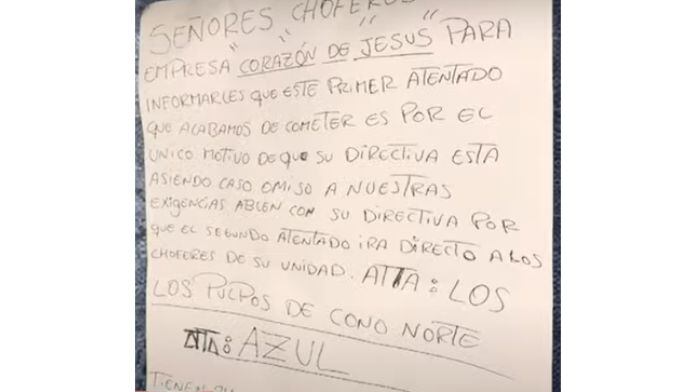 SEÑORES CHOFERES
EMPRESA "CORAZÓN DE "JESUS" PARA
INFORMARLES QUE ESTE PRIMER ATENTADO
QUE ACABAMOS DE COMETER ES POR EL
UNICO MOTIVO DE QUE SU DIRECTIVA ESTA
ASIENDO CASO OMISO A NUESTRAS
EXIGENCIAS ABLEN CON SU DIRECTIVA POR
QUE EL SEGUNDO ATENTADO IRA DIRECTO A LOS
CHOFERES DE SU UNIDAD. ATTA: LOS
LOS PULPOS DE CONO NORTE
ATTA: AZUL
TIENEN